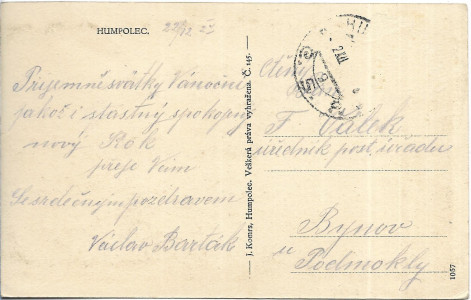 HUMPOLEC.
Příjemné svátky Vánoční
jakož i šťastný spokojný
nový Rok
přeje Vám
Se srdečným pozdravem
Václav Barták
J. Komrs, Humpolec. Veškerá práva vyhražena. Č. 145.
Ctěný
F. Válek
úředník post. úřadu
Bynov
u
Podmokly
1057